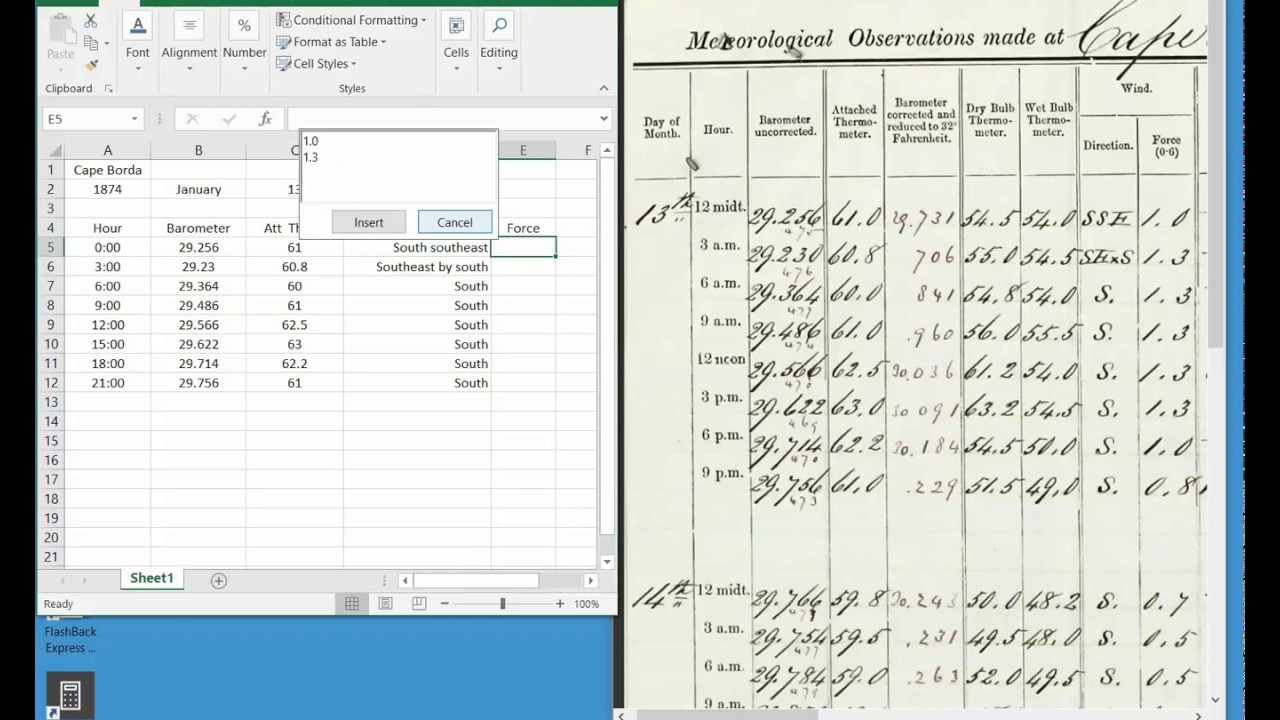 Paste
Clipboard
Font
Alignment
Number
%
Conditional Formatting
Format as Table
Cell Styles
Styles
Cells
Editing
E5
fx
1.0
1.3
Insert
Cancel
A B C E F
1 Cape Borda
2 1874 January 13
3
4 Hour Barometer Att Th Force
5 0:00 29.256 61 South southeast
6 3:00 29.23 60.8 Southeast by south
7 6:00 29.364 60 South
8 9:00 29.486 61 South
9 12:00 29.566 62.5 South
10 15:00 29.622 63 South
11 18:00 29.714 62.2 South
12 21:00 29.756 61 South
13
14
15
16
17
18
19
20
21
Sheet1
Ready
100%
FlashBack
Express ...
Meteorological Observations made at Cape
Day of Month.
Hour.
Barometer uncorrected.
Attached Thermo-meter.
Barometer corrected and reduced to 32° Fahrenheit.
Dry Bulb Thermo-meter.
Wet Bulb Thermo-meter.
Wind.
Direction.
Force (0-6)
13th 12 midt. 29.256 61.0 29.731 54.5 54.0 SSE 1.0
475
3 a.m. 29.230 60.8 706 55.0 54.5 SExS 1.3
476
6 a.m. 29.364 60.0 841 54.8 54.0 S. 1.3
477
9 a.m. 29.486 61.0 .960 56.0 55.5 S. 1.3
474
12 noon 29.566 62.5 30.036 61.2 54.0 S. 1.3
470
3 p.m. 29.622 63.0 30 091 63.2 54.5 S. 1.3
469
6 p.m. 29.714 62.2 30.184 54.5 50.0 S. 1.0
470
9 p.m. 29.756 61.0 .229 51.5 49.0 S. 0.8
473
14th 12 midt. 29.766 59.8 30.243 50.0 48.2 S. 0.7
477
3 a.m. 29.754 59.5 .231 49.5 48.0 S. 0.5
477
6 a.m. 29.784 59.0 .263 52.0 49.5 S. 0.5
479
9 a.m.